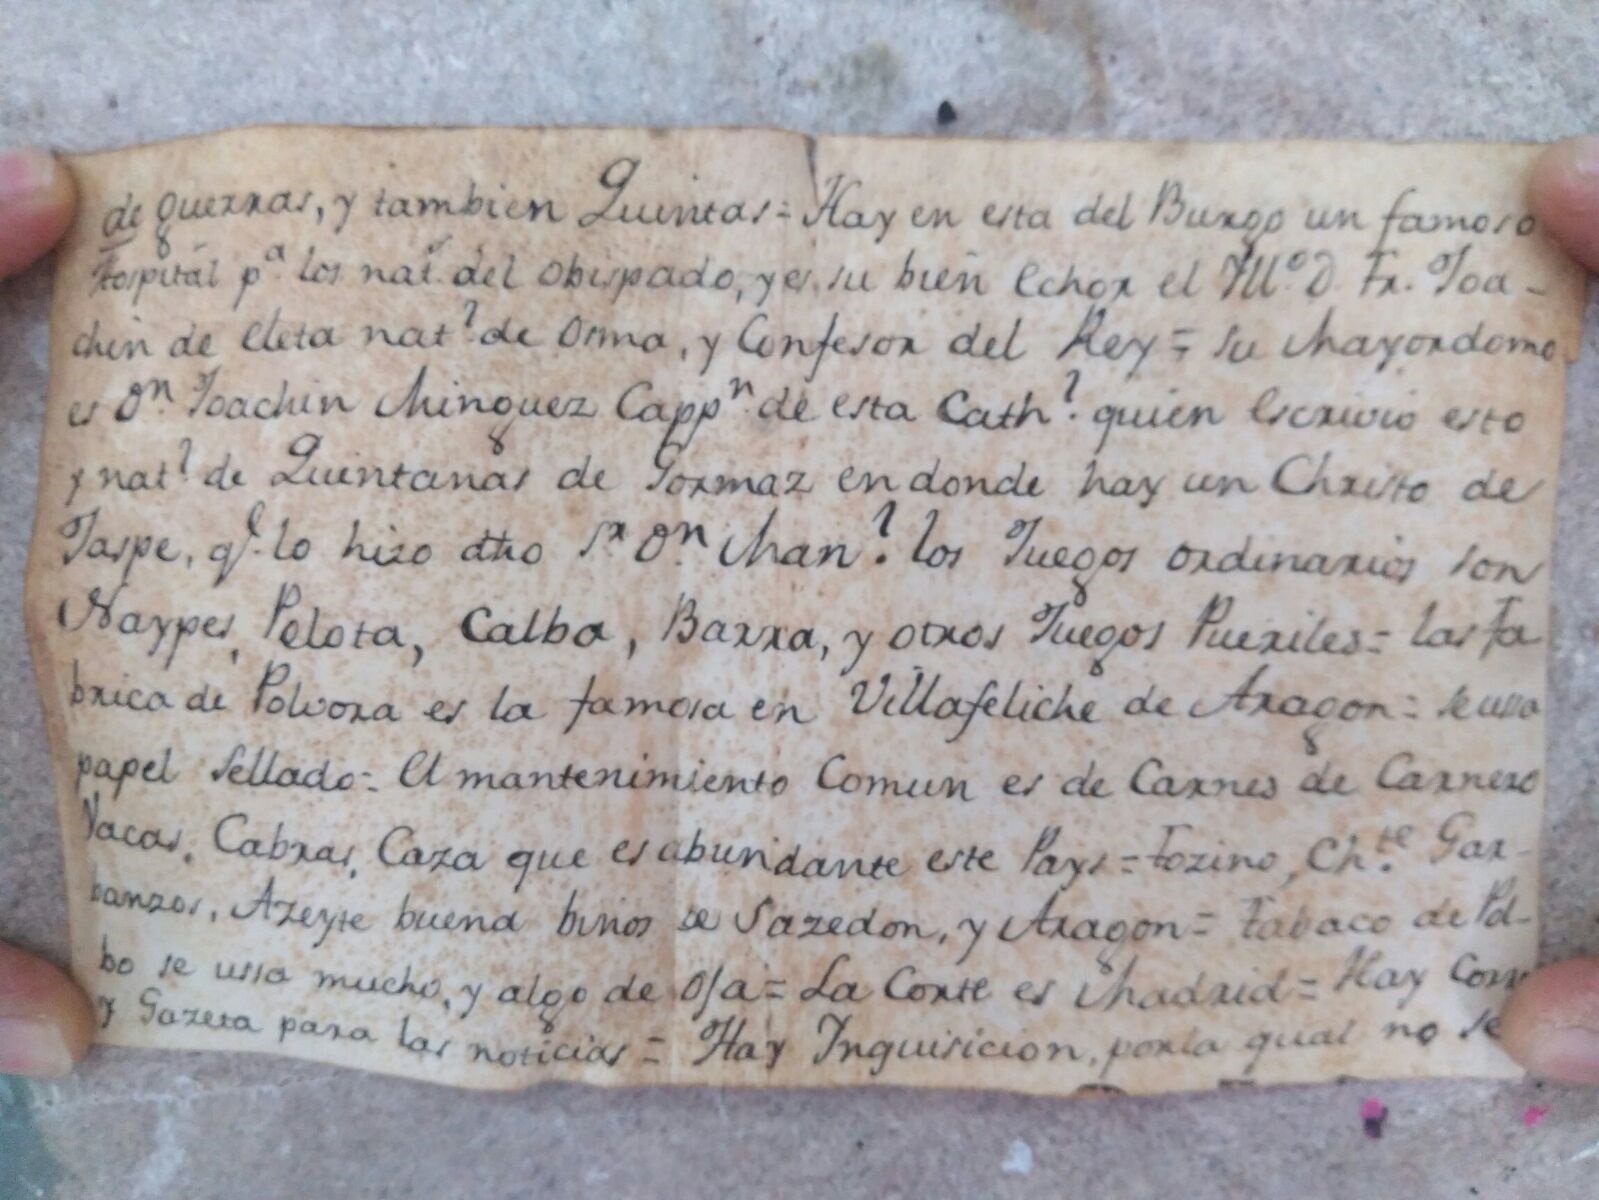 de guerras, y tambien Quintas = Hay en esta del Burgo un famoso
Hospital pa. los nat.s del obispado, y es su bien echor el Yllo. D. Fr. Joa-
chin de eleta natl. de Osma, y Confesor del Rey = su Mayordomo
es Dn. Joachin Minguez Cappn. de esta Cathl. quien Escrivio esto
y natl. de Quintanas de Gormaz en donde hay un Christo de
Jaspe, qe. lo hizo dho Sr Dn. Manl. los Juegos ordinarios son
Naypes, Pelota, Calba, Barra, y otros Juegos Pueriles = las fa
brica de Polvora es la famosa en Villafeliche de Aragon = se ussa
papel Sellado = El mantenimiento Comun es de Carnes de Carnero
Vacas, Cabras, Caza que es abundante este Pays = tozino, Chte. Gar-
banzos, Azeyte buena binos de Sazedon, y Aragon = tabaco de Pol-
bo se ussa mucho, y algo de oja = La Corte es Madrid = Hay Corr
y Gazeta para las noticias = Hay Ynquisicion, por la qual no se